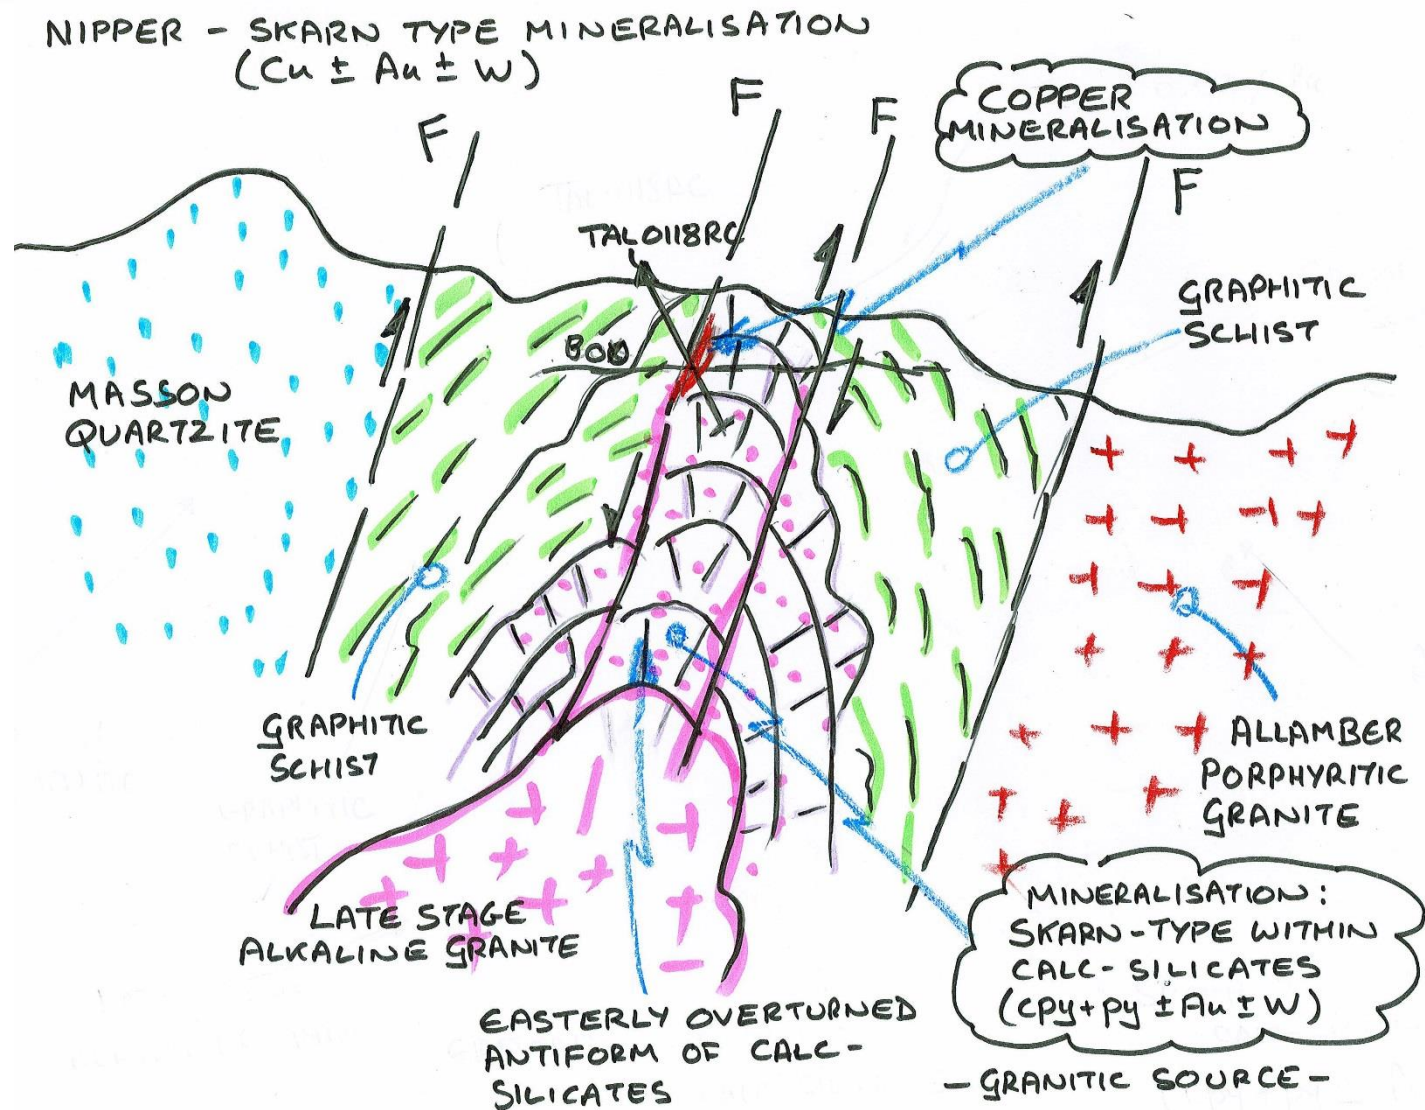 NIPPER - SKARN TYPE MINERALISATION
(Cu ± Au ± W)
F
F
F
F
COPPER
MINERALISATION
TAL0118RC
GRAPHITIC
SCHIST
BOD
MASSON
QUARTZITE
GRAPHITIC
SCHIST
ALLAMBER
PORPHYRITIC
GRANITE
LATE STAGE
ALKALINE GRANITE
MINERALISATION:
SKARN-TYPE WITHIN
CALC-SILICATES
(cpy+py ± Au ± W)
EASTERLY OVERTURNED
ANTIFORM OF CALC-
SILICATES
- GRANITIC SOURCE -